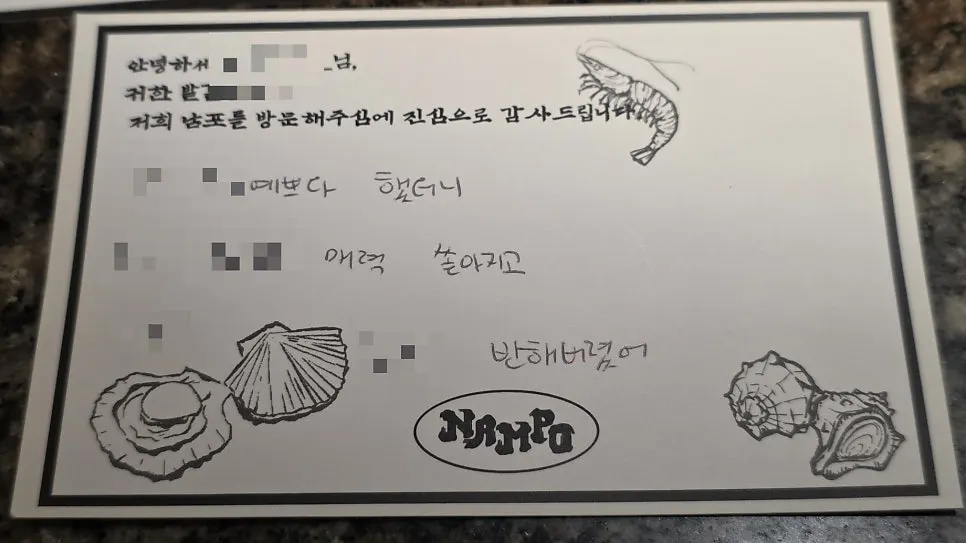 안녕하세 님,
귀한 발
저희 남포를 방문해주심에 진심으로 감사드립니다
예쁘다 했더니
매력 쏟아지고
반해버렸어
NAMPO